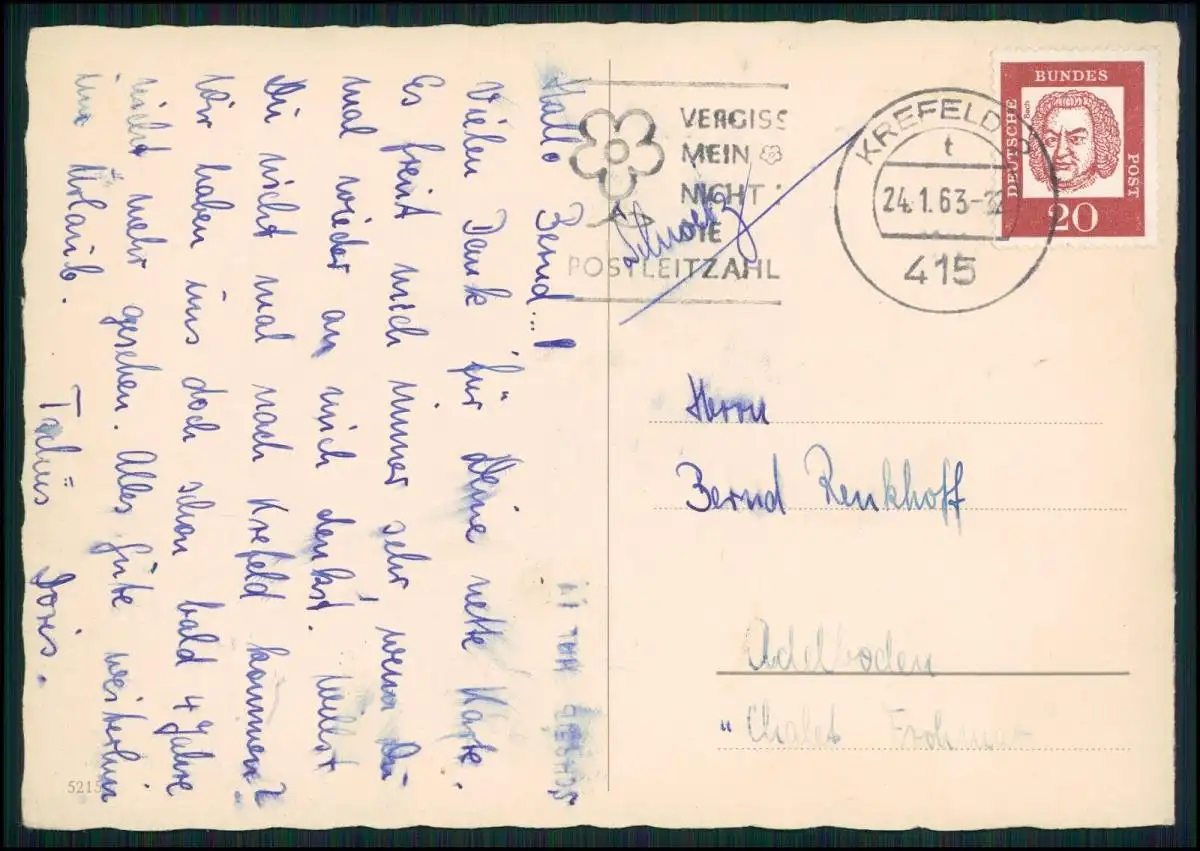 Hallo Bernd...!
Vielen Dank für Deine nette Karte.
Es freut mich immer sehr wenn Du
mal wieder an mich denkst. Willst
Du nicht mal nach Krefeld kommen?
Wir haben uns doch schon bald 4 Jahre
nicht mehr gesehen. Alles gute weiterhin
im Urlaub.
Tschüs Doris.
5215
VERGISS
MEIN
NICHT
DIE
POSTLEITZAHL
KREFELD
t
24.1.63-
415
DEUTSCHE
BUNDES
POST
Bach
20
Herrn
Bernd Renkhoff
Adelboden
"Chalet